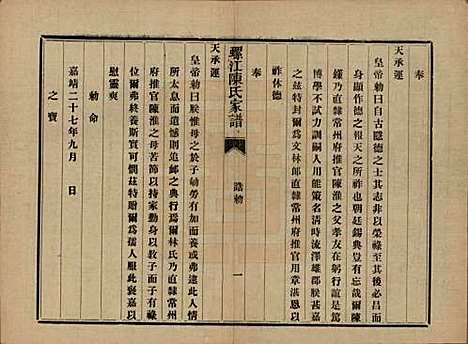 奉
天承運
皇帝勅曰自古隱德之士其志非以榮祿至其後必昌而
身顯作德之報天之所祚也朝廷錫典豈有忘哉爾陳
僅乃直隷常州府推官陳淮之父孝友在躬行誼是篤
博學不試力訓嗣人用能策名清時流澤雄郡朕甚嘉
之茲特封爾爲文林郎直隷常州府推官用章湛恩以
祚休德
奉
天承運
皇帝勅曰朕惟母之於子劬勞有加而養或弗逮此人情
所太息而遺憾則追䘏之典行焉爾林氏乃直隷常州
府推官陳淮之母若節而以持家勤身以教子而子有
爾母弗終養斯實可憫茲特贈爾爲孺人服此褒嘉以
慰靈爽
勅命
嘉靖二十七年九月 日
之寶
螺江陳氏家譜
誥勅
一